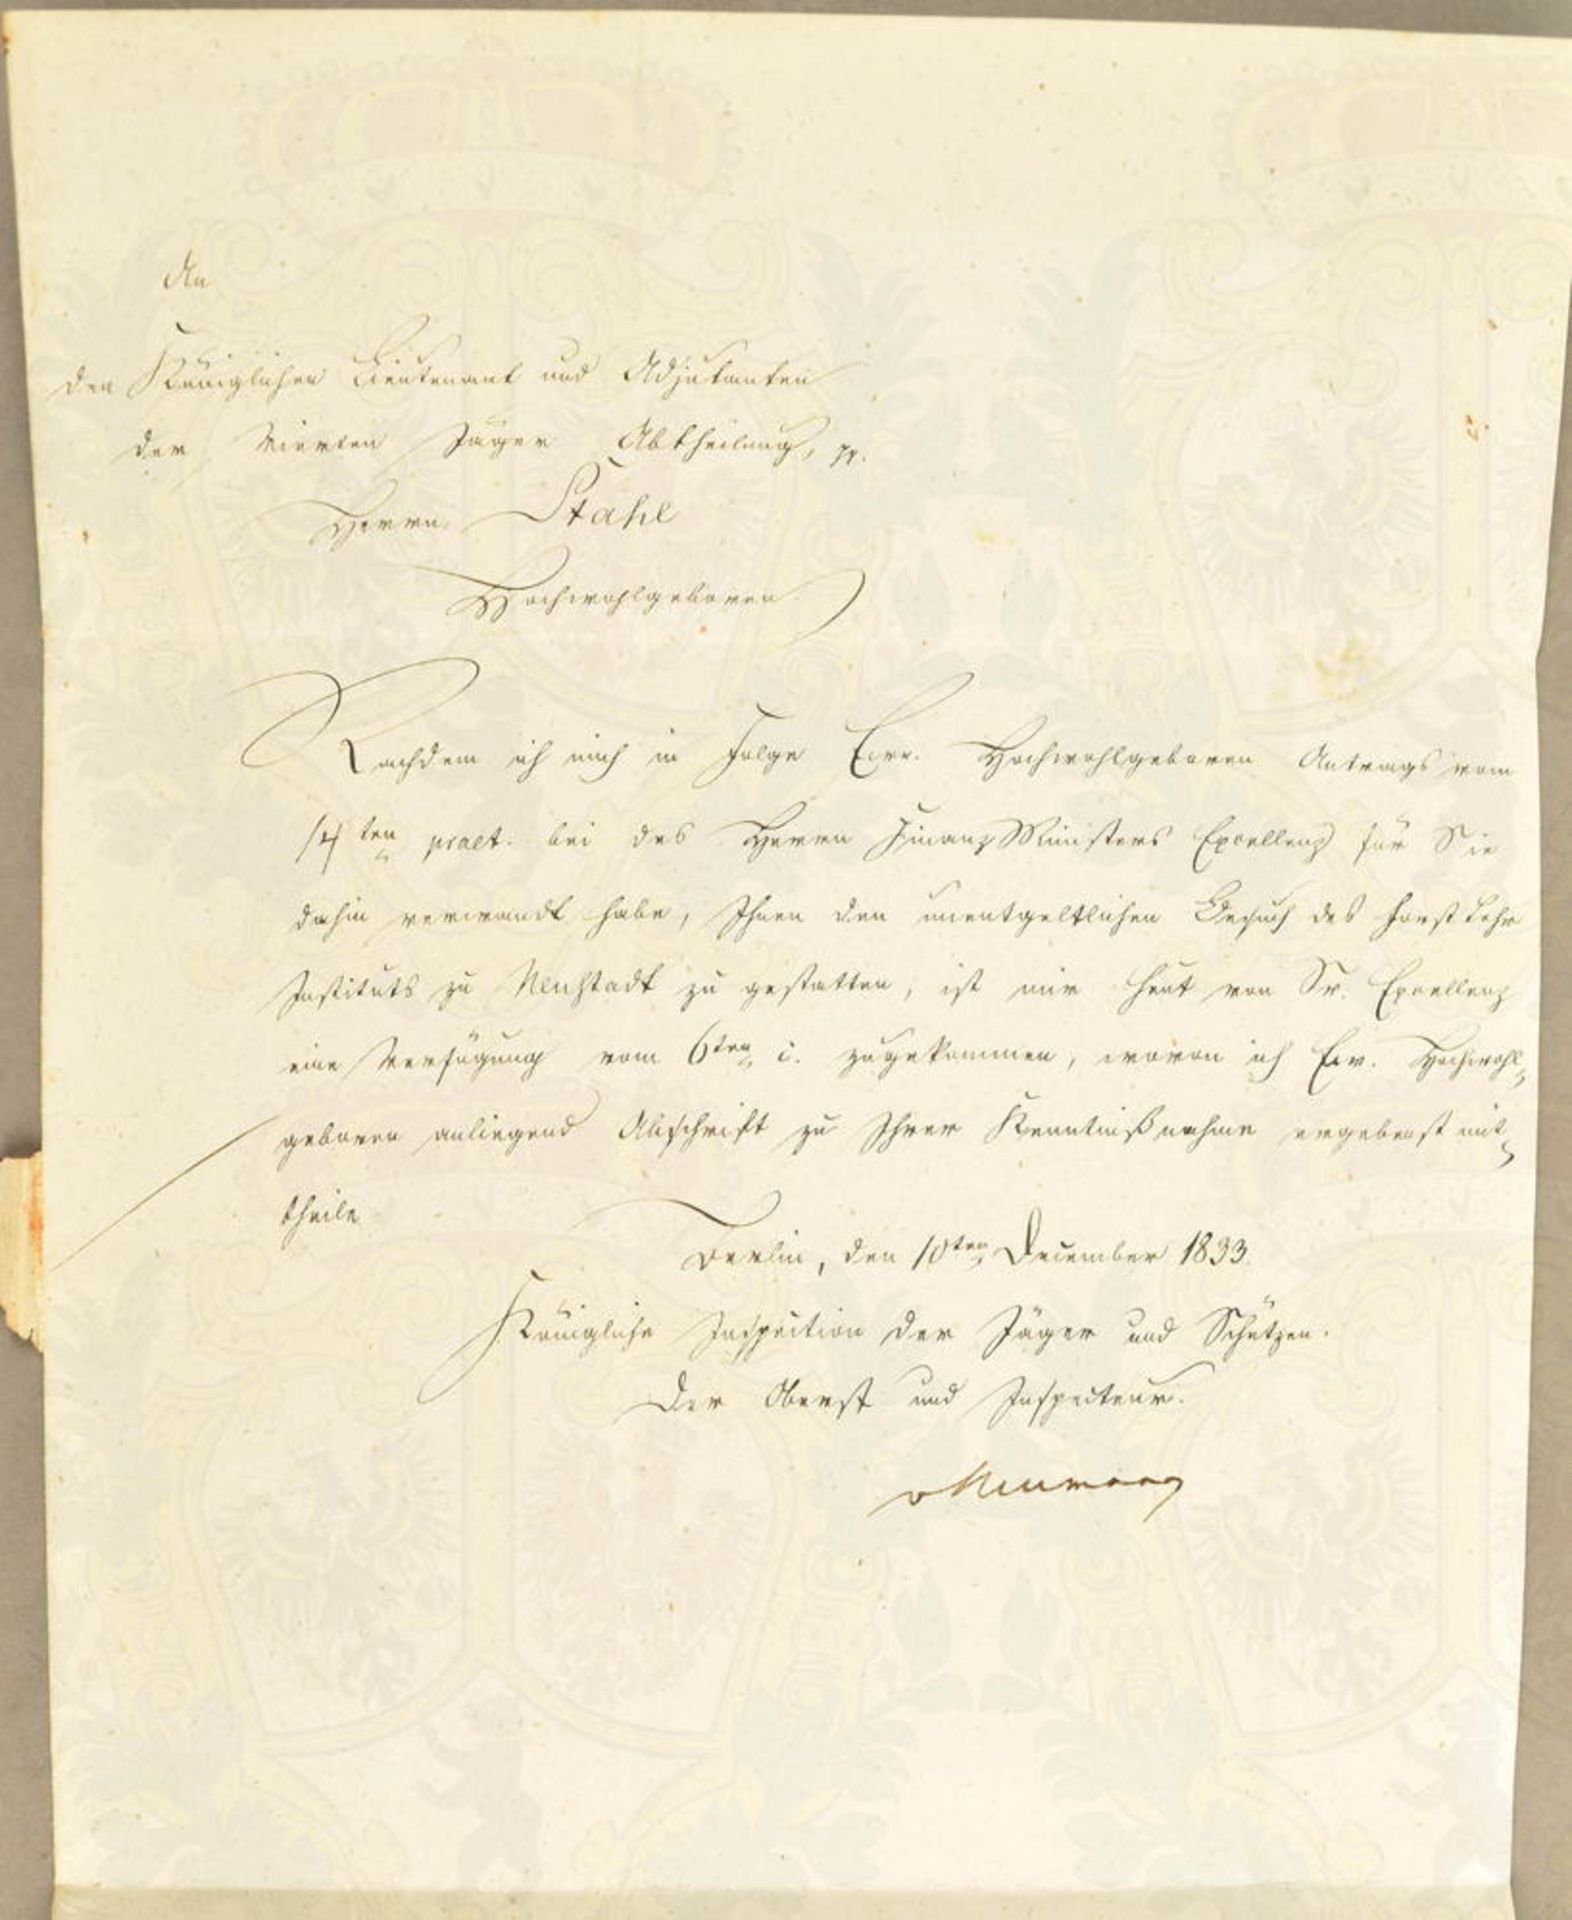 An
den Königlichen Lieutenant und Adjutanten
der Vierten Jäger Abtheilung, pp.
Herrn Stahl
Hochwohlgeboren
Nachdem ich mich in Folge Ewr. Hochwohlgeboren Antrags vom
14ten praet. bei des Herrn Finanz Ministers Excellenz für Sie
dahin verwandt habe, Ihnen den unentgeltlichen Besuch des Forst Lehr
Instituts zu Neustadt zu gestatten, ist mir heut von Sr. Excellenz
eine Verfügung vom 6ten c. zugekommen, wovon ich Ew. Hochwohl„
geboren anliegend Abschrift zu Ihrer Kenntnißnahme ergebenst mit„
theile
Berlin, den 10ten December 1833.
Königliche Inspection der Jäger und Schützen.
Der Oberst und Inspecteur.
v Neumann